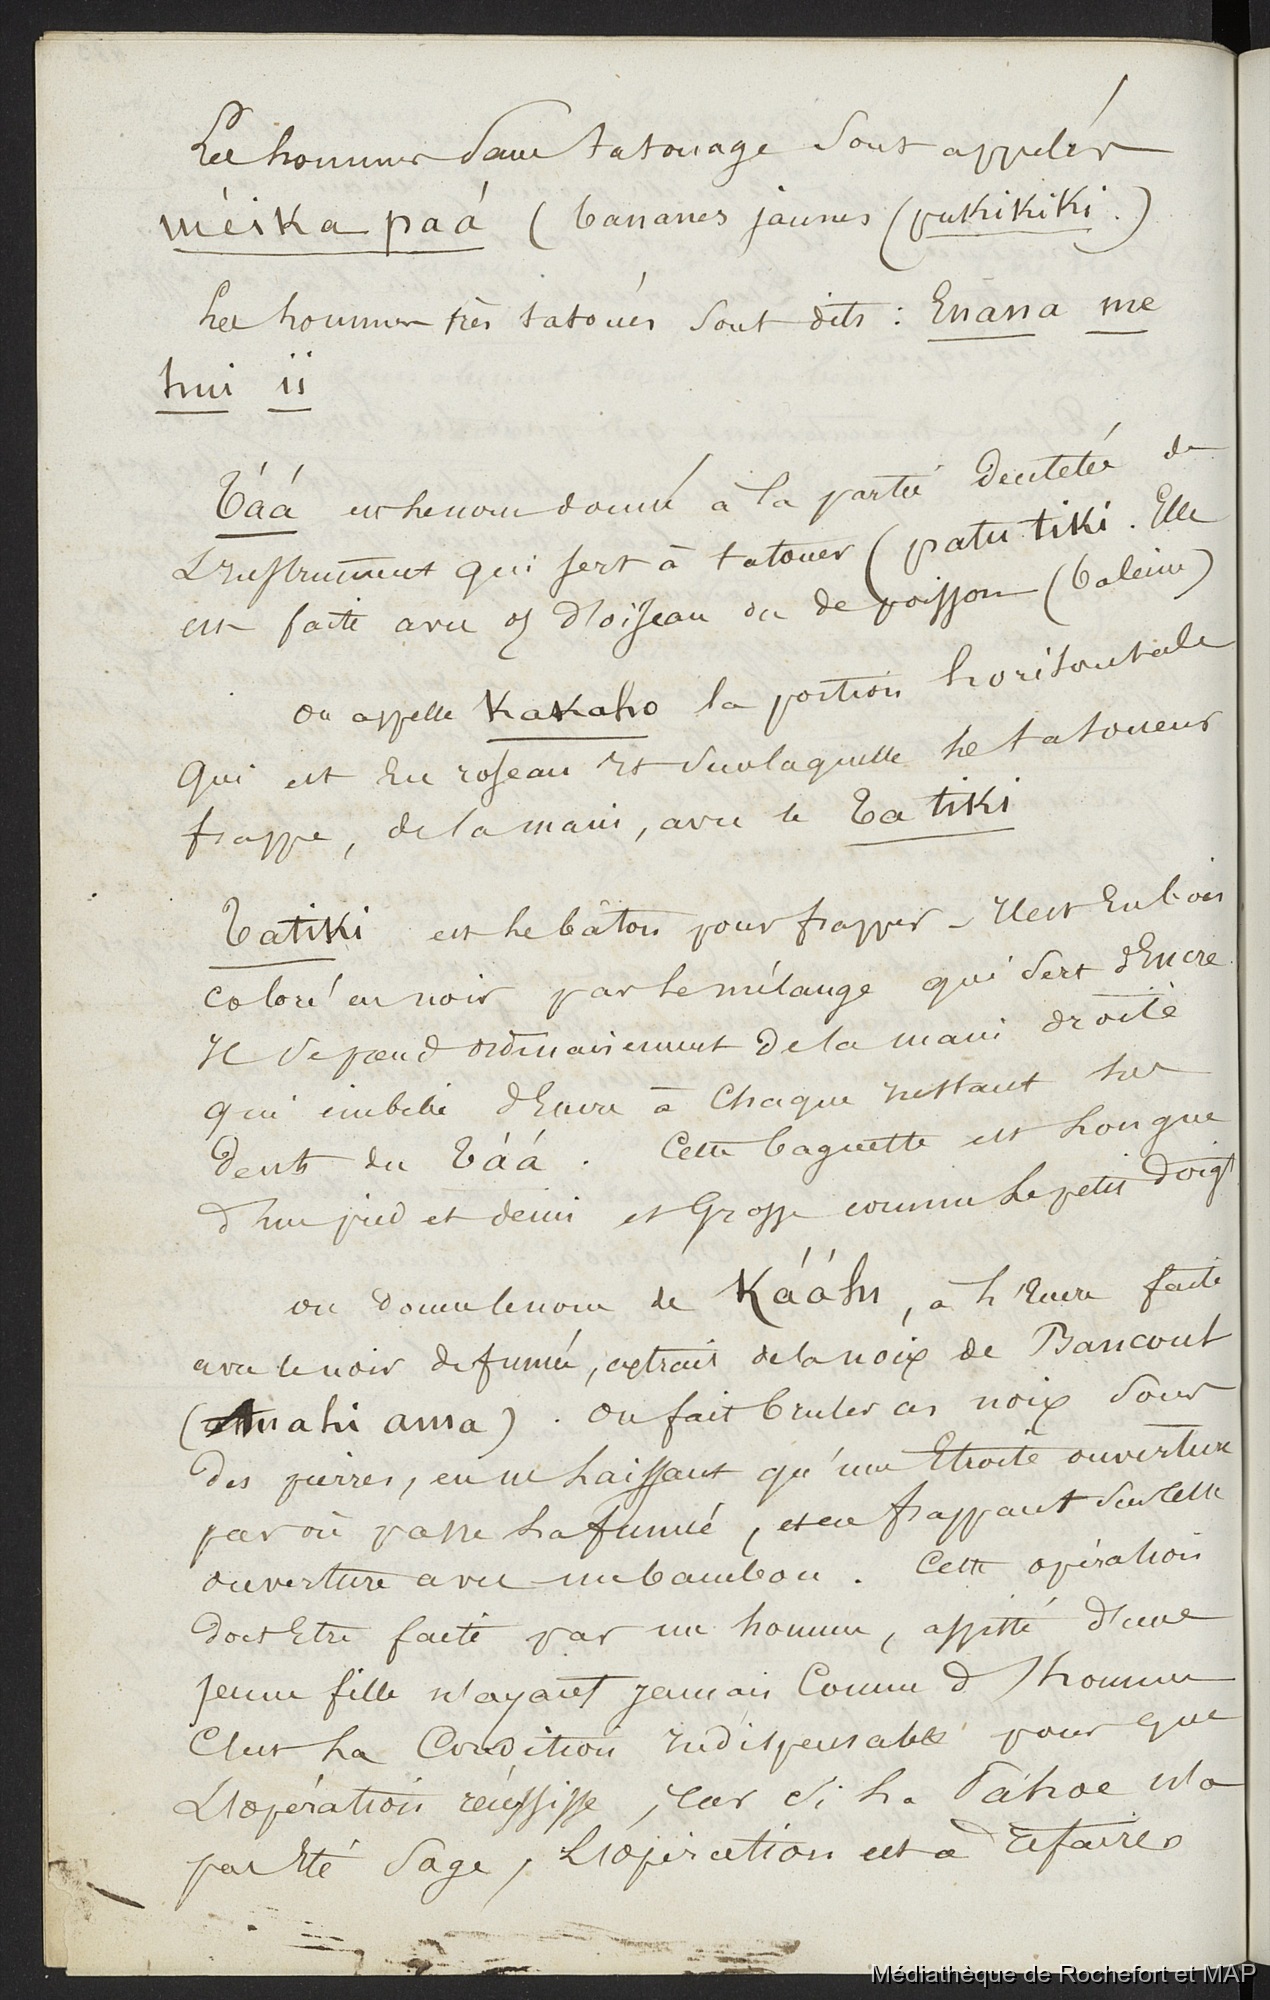 Les hommes sans tatouage sont appelés
méika paá (bananes jaunes (pukikiki.)
Les hommes très tatoués sont dits : Enana me
hui ii
Táá est le nom donné à la partie dentetée de
L'instrument qui sert à tatouer (patu tiki. Elle
est faite avec os d'oiseau ou de poisson (baleine)
on appelle Kakaho la portion horisontale
qui est En roseau Et sur laquelle le tatoueur
frappe, de la main, avec le Ta tiki
Tatiki est le bâton pour frapper - Il est En bois
coloré en noir par le mélange qui sert d'Encre
Il se prend ordinairement de la main droite
qui imbibe d'Encre à Chaque instant les
dents du Táá. Cette baguette est Longue
d'un pied et demi et Grosse comme Le petit doigt
on donne le nom de Kááhu, à L'Encre faite
avec le noir de fumée, extrait de la noix de Bancoul
(ahi ama). on fait bruler ces noix sous
des pierres, en ne Laissant qu'une Etroite ouverture
par où passe La fumée, et en frappant sur cette
ouverture avec un bambou. Cette opération
doit Etre faite par un homme, assisté d'une
jeune fille n'ayant jamais Connu d'homme
C'est La Condition indispensable pour que
L'opération réussisse, car si La n'a
pas Eté sage, L'opération est à refaire
Médiathèque de Rochefort et MAP